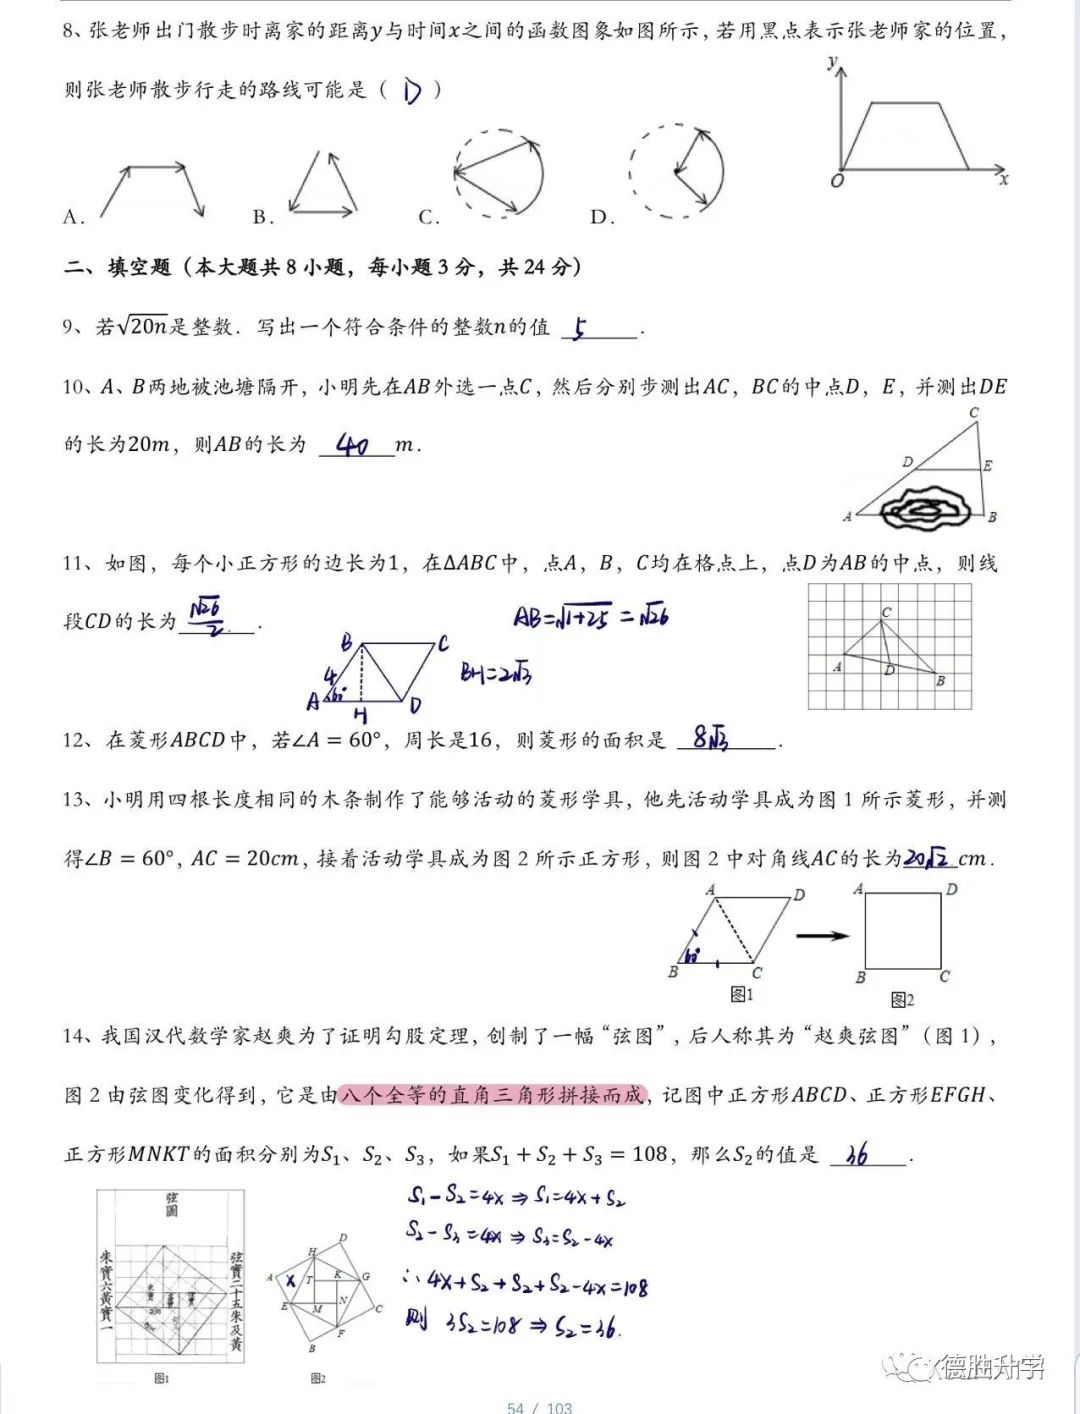 8、张老师出门散步时离家的距离y与时间x之间的函数图象如图所示，若用黑点表示张老师家的位置，
则张老师散步行走的路线可能是（ D ）
y
O
x
A.
B.
C.
D.
二、填空题（本大题共 8 小题，每小题 3 分，共 24 分）
9、若√20n是整数．写出一个符合条件的整数n的值 5 ．
10、A、B两地被池塘隔开，小明先在AB外选一点C，然后分别步测出AC，BC的中点D，E，并测出DE
的长为20m，则AB的长为 40 m．
C
D
E
A
B
11、如图，每个小正方形的边长为1，在ΔABC中，点A，B，C均在格点上，点D为AB的中点，则线
段CD的长为 √26/2 ．
AB=√1+25 = √26
BH=2√3
B
C
4
60°
A
H
D
C
A
D
B
12、在菱形ABCD中，若∠A = 60°，周长是16，则菱形的面积是 8√3 ．
13、小明用四根长度相同的木条制作了能够活动的菱形学具，他先活动学具成为图 1 所示菱形，并测
得∠B = 60°，AC = 20cm，接着活动学具成为图 2 所示正方形，则图 2 中对角线AC的长为20√2 cm．
A
D
60°
B
C
图1
A
D
B
C
图2
14、我国汉代数学家赵爽为了证明勾股定理，创制了一幅“弦图”，后人称其为“赵爽弦图”（图 1），
图 2 由弦图变化得到，它是由八个全等的直角三角形拼接而成，记图中正方形ABCD、正方形EFGH、
正方形MNKT的面积分别为S₁、S₂、S₃，如果S₁ + S₂ + S₃ = 108，那么S₂的值是 36 ．
S₁-S₂=4x ⇒ S₁=4x+S₂
S₂-S₃=4x ⇒ S₃=S₂-4x
∴ 4x+S₂+S₂+S₂-4x=108
则 3S₂=108 ⇒ S₂=36.
弦圖
朱實六黃實一
弦實二十五朱及黃
图1
D
H
A
x
T
K
G
E
M
N
C
F
B
图2
德胜升学
54 / 103